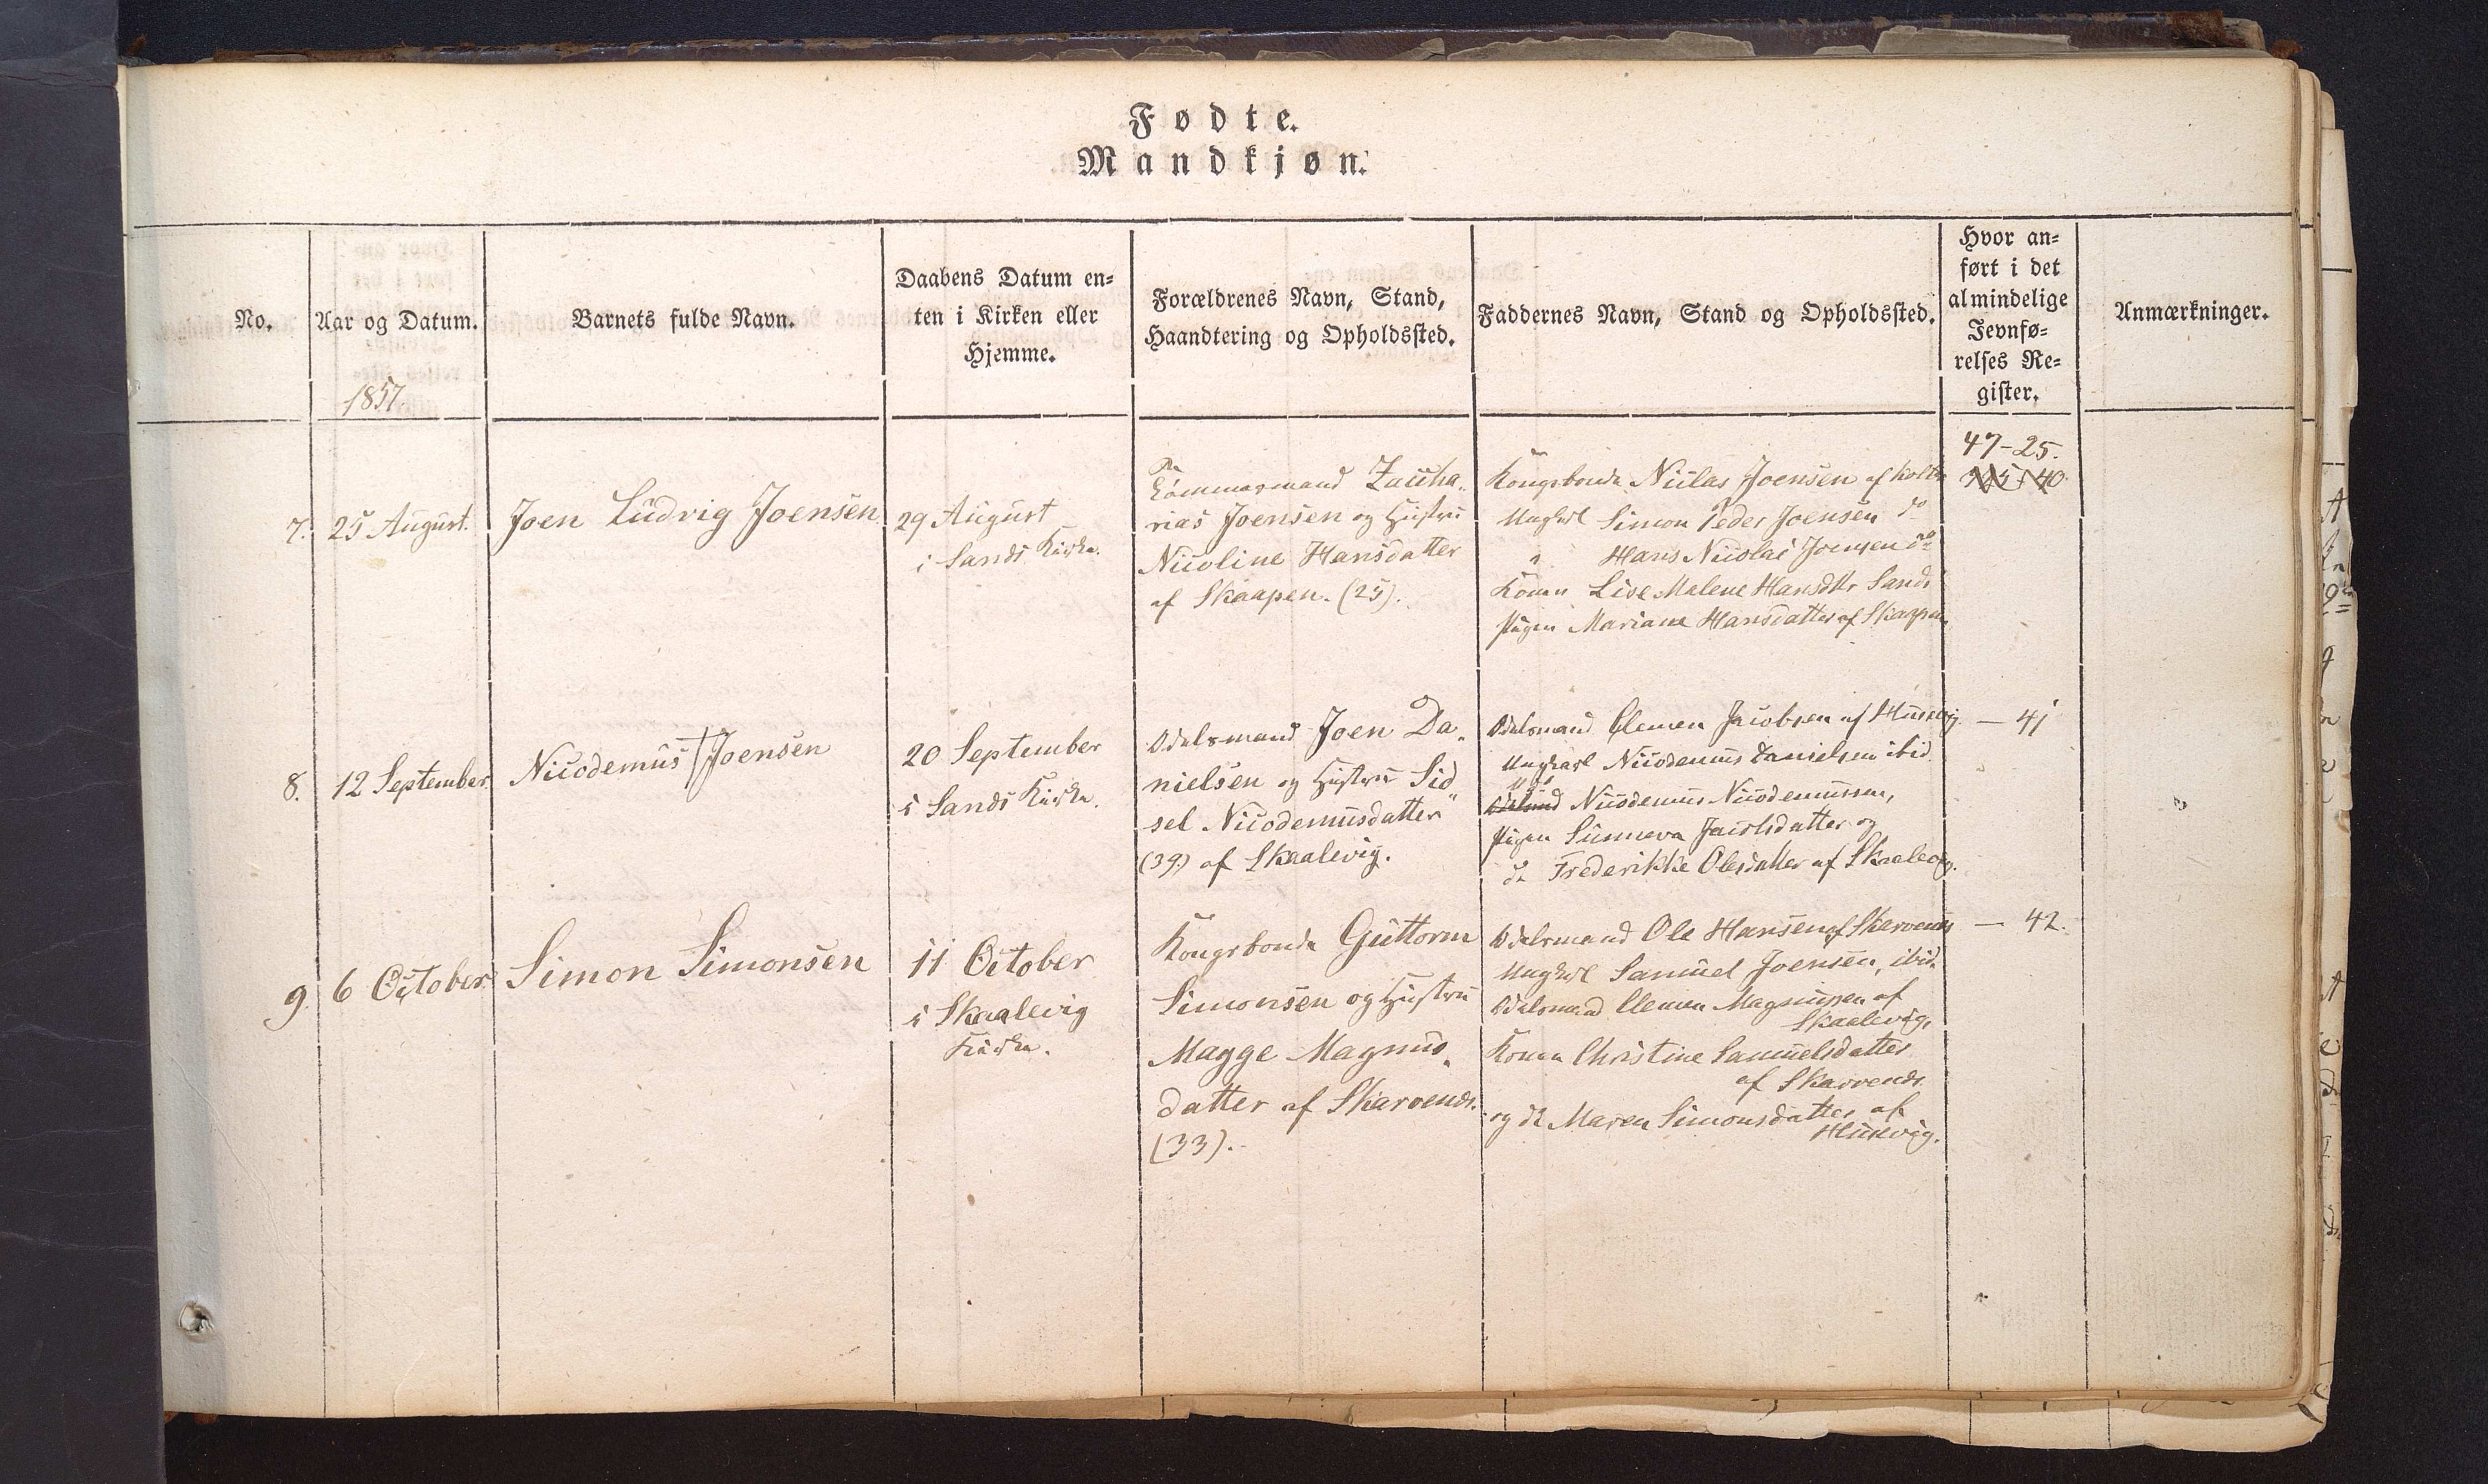 Fødte.
Mandkjøn.
No.
Aar og Datum.
1857.
Barnets fulde Navn.
Daabens Datum en=
ten i Kirken eller
Hjemme.
Forældrenes Navn, Stand,
Haandtering og Opholdssted.
Faddernes Navn, Stand og Opholdssted.
Hvor an=
ført i det
almindelige
Jevnfø=
relses Re=
gister.
Anmærkninger.
7.
25 August.
Joen Ludvig Joensen
29 August
i Sands Kirke.
Tømmermand Zacha„
rias Joensen og Hustru
Nicoline Hansdatter
af Skaapen. (25).
Kongsbonde Niclas Joensen af
Ungkarl Simon Peder Joensen do
" Hans Nicolai Joensen do
Konen Lise Malene Hansdttr Sands
Pigen Mariane Hansdatter af Skaapen
47-25.
8.
12 September
Nicodemus Joensen
20 September
i Sands Kirke.
Odelsmand Joen Da„
nielsen og Hustru Sid„
sel Nicodemusdatter
(39) af Skaalevig.
Odelsmand Clemen Jacobsen af Husevig
Ungkarl Nicodemus Danielsen ibid
Nicodemus Nicodemussen,
Pigen Sunneva Jacobsdatter og
do Frederikke Olesdatter af Skaalevig.
— 41
9.
6 October
Simon Simonsen
11 October
i Skaalevig
Kirke.
Kongsbonde Guttorm
Simonsen og Hustru
Magge Magnus„
datter af Skarvenæs.
(33).
Odelsmand Ole Hansen af Skarvenæs
Ungkarl Samuel Joensen, ibid.
Odelsmand Clemen Magnussen af
Skaalevig,
Konen Christine Samuelsdatter
af Skarvenæs
og do Maren Simonsdatter af
Husevig.
— 42.